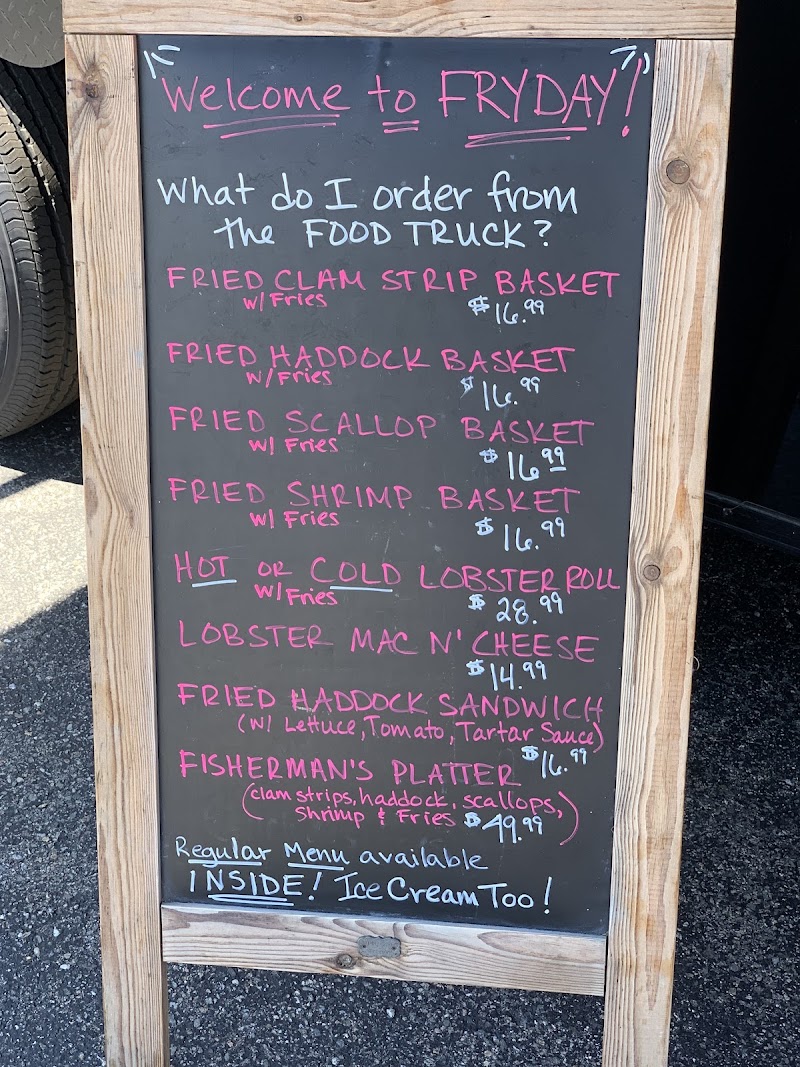 Welcome to FRYDAY!
What do I order from
the FOOD TRUCK?
FRIED CLAM STRIP BASKET
w/ Fries $16.99
FRIED HADDOCK BASKET
w/ Fries $16.99
FRIED SCALLOP BASKET
w/ Fries $16.99
FRIED SHRIMP BASKET
w/ Fries $16.99
HOT OR COLD LOBSTER ROLL
w/ Fries $28.99
LOBSTER MAC N' CHEESE
$14.99
FRIED HADDOCK SANDWICH
(w/ Lettuce, Tomato, Tartar Sauce)
$16.99
FISHERMAN'S PLATTER
(clam strips, haddock, scallops,
Shrimp & Fries $49.99)
Regular Menu available
INSIDE! Ice Cream Too!